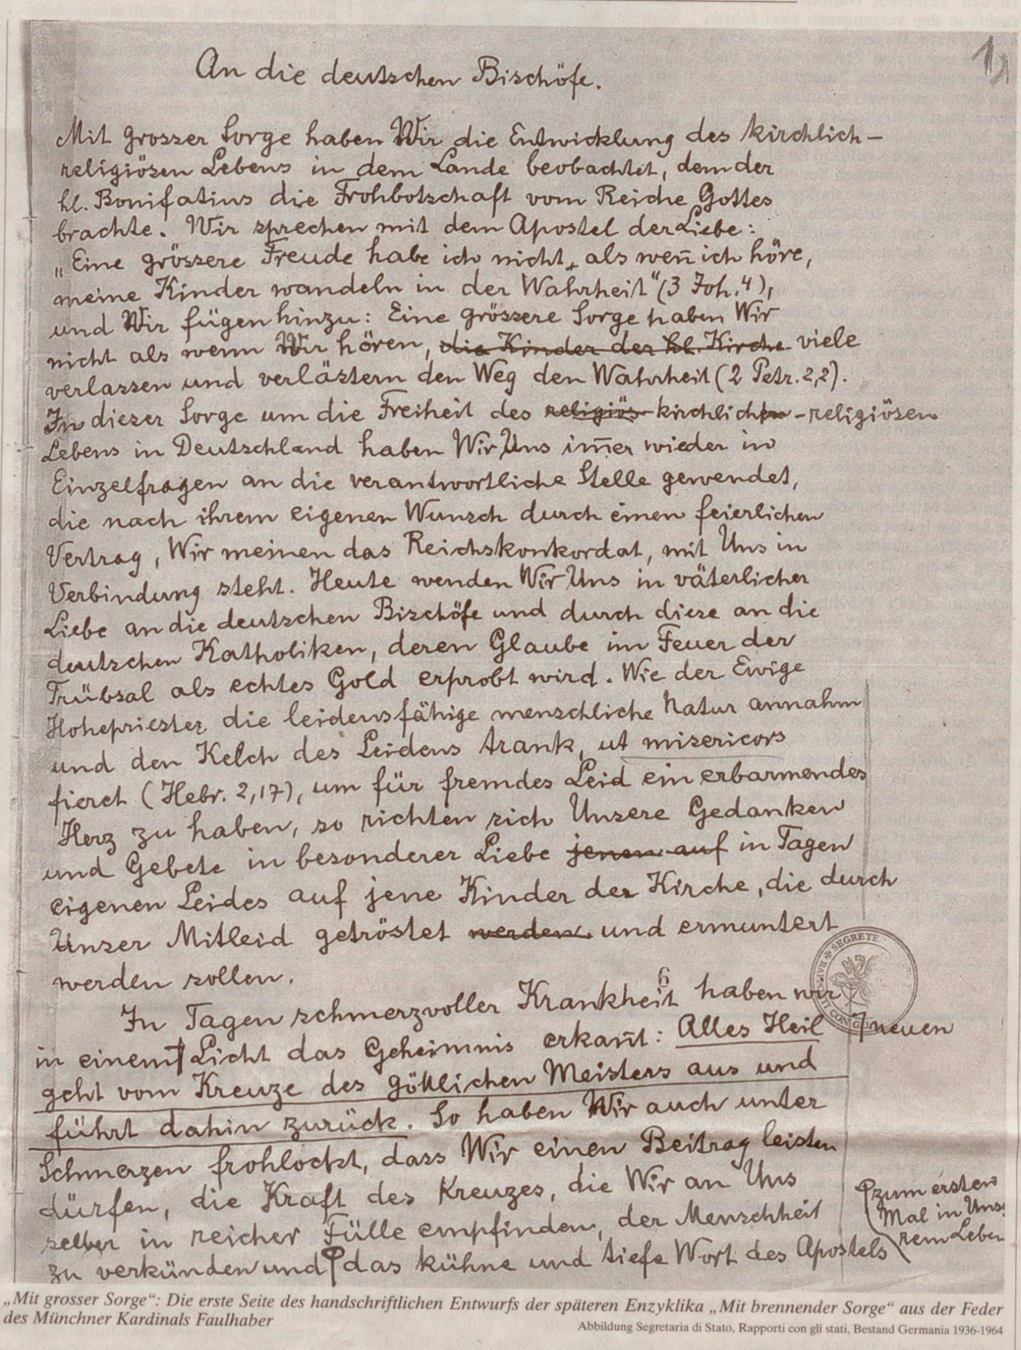 1
An die deutschen Bischöfe.
Mit grosser Sorge haben Wir die Entwicklung des kirchlich-
religiösen Lebens in dem Lande beobachtet, dem der
hl. Bonifatius die Frohbotschaft vom Reiche Gottes
brachte. Wir sprechen mit dem Apostel der Liebe:
„Eine grössere Freude habe ich nicht, als wen̄ ich höre,
meine Kinder wandeln in der Wahrheit“ (3 Joh. 4),
und Wir fügen hinzu: Eine grössere Sorge haben Wir
nicht als wenn Wir hören, die Kinder der hl. Kirche viele
verlassen und verlästern den Weg den Wahrheit (2 Petr. 2,2).
In dieser Sorge um die Freiheit des religiös kirchlichen -religiösen
Lebens in Deutschland haben Wir Uns im̄er wieder in
Einzelfragen an die verantwortliche Stelle gewendet,
die nach ihrem eigenen Wunsch durch einen feierlichen
Vertrag, Wir meinen das Reichskonkordat, mit Uns in
Verbindung steht. Heute wenden Wir Uns in väterlicher
Liebe an die deutschen Bischöfe und durch diese an die
deutschen Katholiken, deren Glaube im Feuer der
Trübsal als echtes Gold erprobt wird. Wie der Ewige
Hohepriester die leidensfähige menschliche Natur annahm
und den Kelch des Leidens trank, ut misericors
fieret (Hebr. 2,17), um für fremdes Leid ein erbarmendes
Herz zu haben, so richten sich Unsere Gedanken
und Gebete in besonderer Liebe jenen auf in Tagen
eigenen Leides auf jene Kinder der Kirche, die durch
Unser Mitleid getröstet werden und ermuntert
werden sollen.
In Tagen schmerzvoller Krankheit haben wir
6
in einem Licht das Geheimnis erkan̄t: Alles Heil
neuen
geht vom Kreuze des göttlichen Meisters aus und
führt dahin zurück. So haben Wir auch unter
Schmerzen frohlockt, dass Wir einen Beitrag leisten
dürfen, die Kraft des Kreuzes, die Wir an Uns
selber in reicher Fülle empfinden, der Menschheit
zu verkünden und das kühne und tiefe Wort des Apostels
zum ersten
Mal in Uns
rem Leben
SEGRETE
„Mit grosser Sorge“: Die erste Seite des handschriftlichen Entwurfs der späteren Enzyklika „Mit brennender Sorge“ aus der Feder
des Münchner Kardinals Faulhaber
Abbildung Segretaria di Stato, Rapporti con gli stati, Bestand Germania 1936-1964